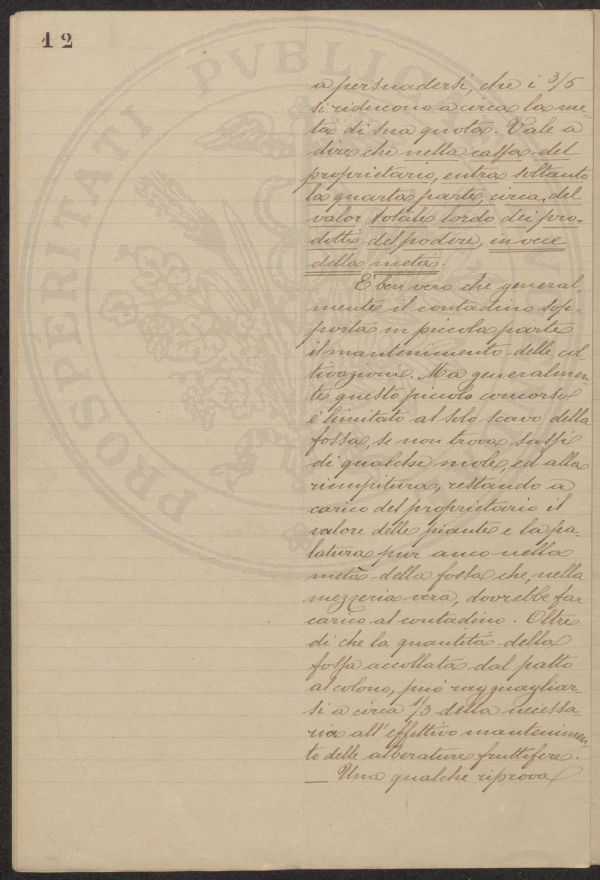 12
PROSPERITATI PVBLICAE
a persuadersi, che i 3/5
si riducono a circa la me-
tà di sua quota. Vale a
dire che nella cassa del
proprietario, entra soltanto
la quarta parte, circa, del
valor totale lordo dei pro-
dotti del podere, invece
della metà.
E' ben vero che general-
mente il contadino sop-
porta in piccola parte
il mantenimento delle col
tivazioni. Ma generalmen-
te questo piccolo concorso
è limitato al solo scavo della
fossa, se non trova sassi
di qualche mole, ed alla
riempitura, restando a
carico del proprietario il
valore delle piante e la pa-
latura pur anco nella
metà della fossa che, nella
mezzeria vera, dovrebbe far
carico al contadino. Oltre
di che la quantità della
fossa accollata dal patto
al colono, può ragguagliar-
si a circa 1/3 della necessa-
ria all'effettivo mantenimen-
to delle alberature fruttifere.
— Una qualche riprova